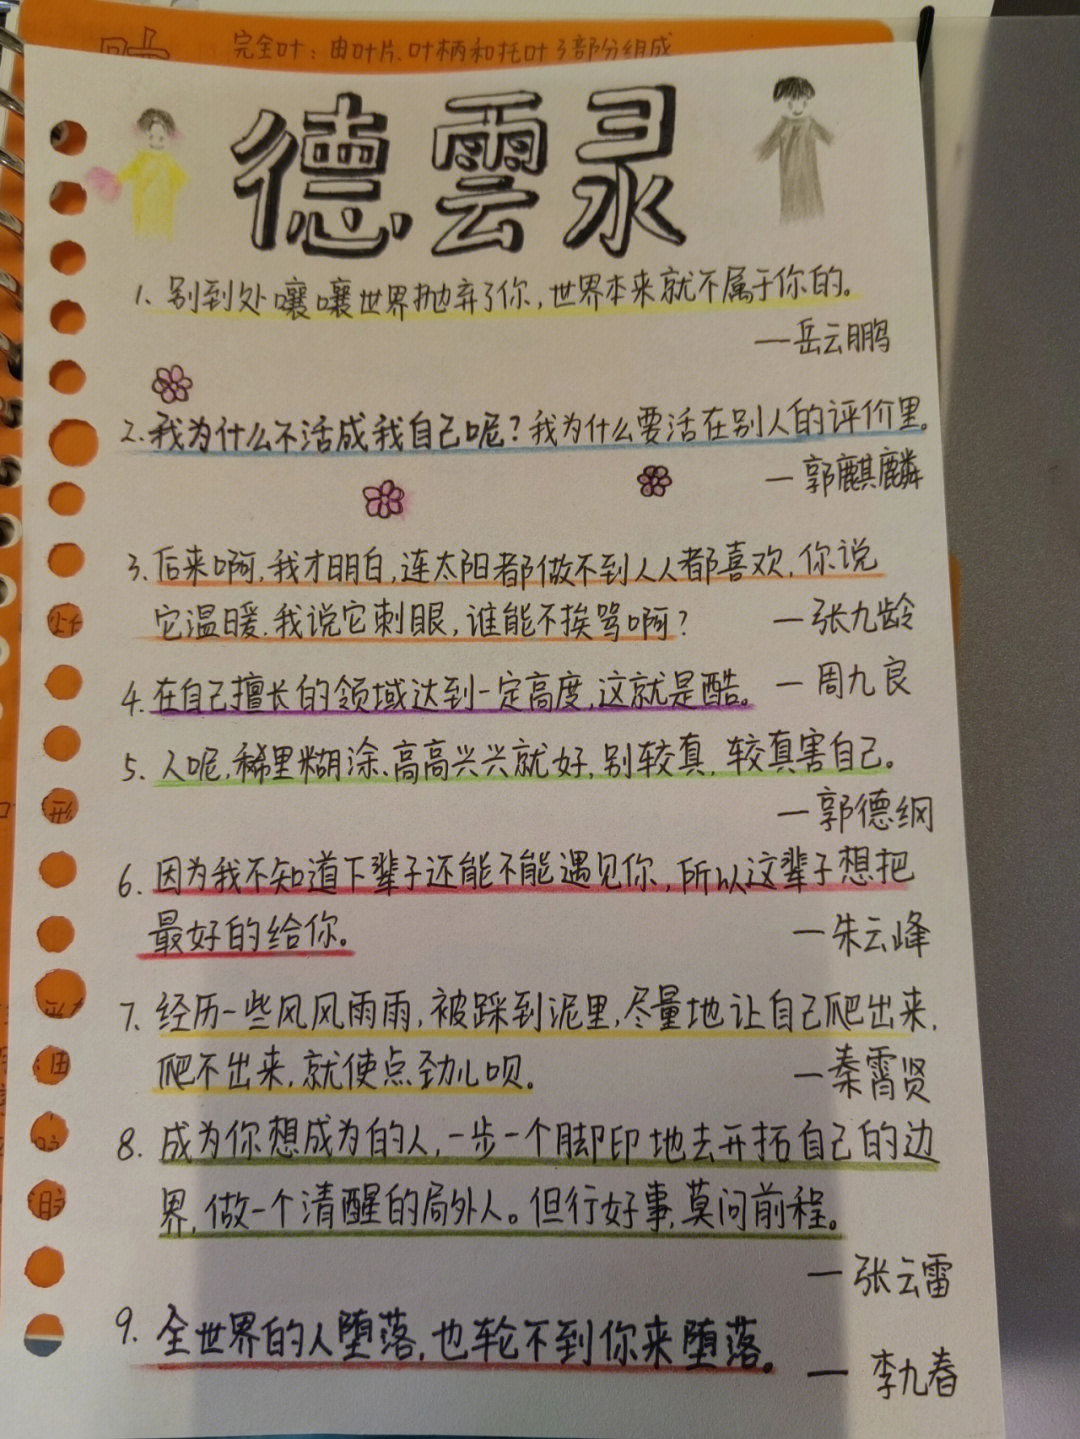 完全叶：由叶片、叶柄和托叶3部分组成
德雲录
1、别到处嚷嚷世界抛弃了你,世界本来就不属于你的。
—岳云鹏
2.我为什么不活成我自己呢?我为什么要活在别人的评价里。
—郭麒麟
3.后来啊,我才明白,连太阳都做不到人人都喜欢,你说
它温暖.我说它刺眼,谁能不挨骂啊? —张九龄
4.在自己擅长的领域达到一定高度,这就是酷。 —周九良
5.人呢,稀里糊涂、高高兴兴就好,别较真,较真害自己。
—郭德纲
6.因为我不知道下辈子还能不能遇见你,所以这辈子想把
最好的给你。 —朱云峰
7.经历一些风风雨雨,被踩到泥里,尽量地让自己爬出来,
爬不出来,就使点劲儿呗。 —秦霄贤
8.成为你想成为的人,一步一个脚印地去开拓自己的边
界,做一个清醒的局外人。但行好事,莫问前程。
—张云雷
9.全世界的人堕落,也轮不到你来堕落。 —李九春